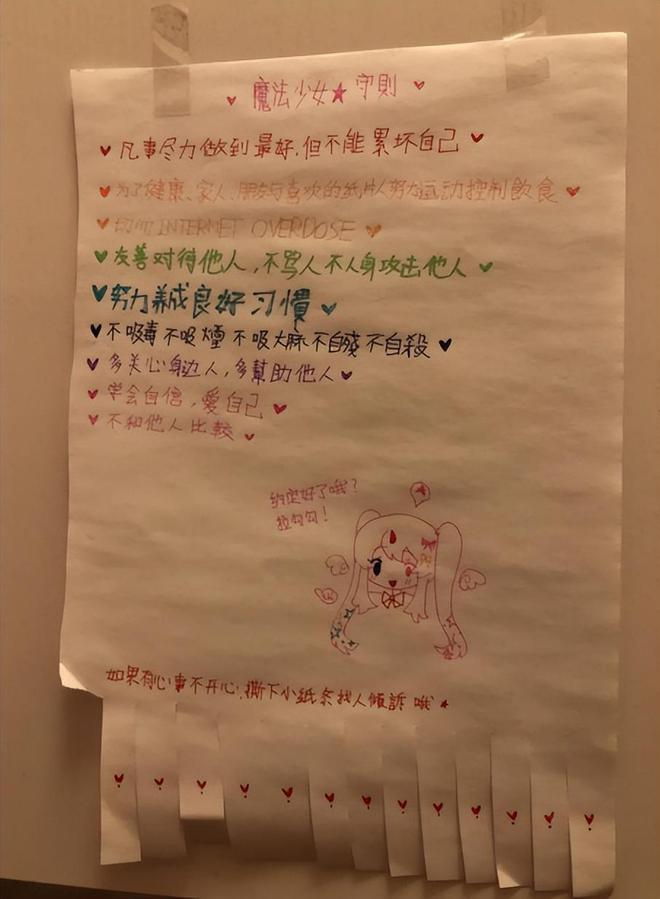 魔法少女★守則
凡事尽力做到最好,但不能累坏自己
为了健康、家人、朋友与喜欢的纸片人努力运动控制飲食
切勿INTERNET OVERDOSE
友善对待他人,不骂人不人身攻击他人
努力养成良好习慣
不吸毒不吸煙不吸大麻不自殘不自殺
多关心身边人,多幫助他人
学会自信,愛自己
不和他人比較
约定好了哦?
拉勾勾!
如果有心事不开心,撕下小紙条找人傾訴哦★